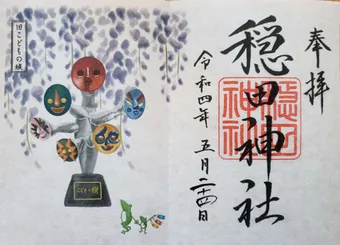 奉拝
穏田神社
令和四年 五月二十四日
旧こどもの城
こどもの樹